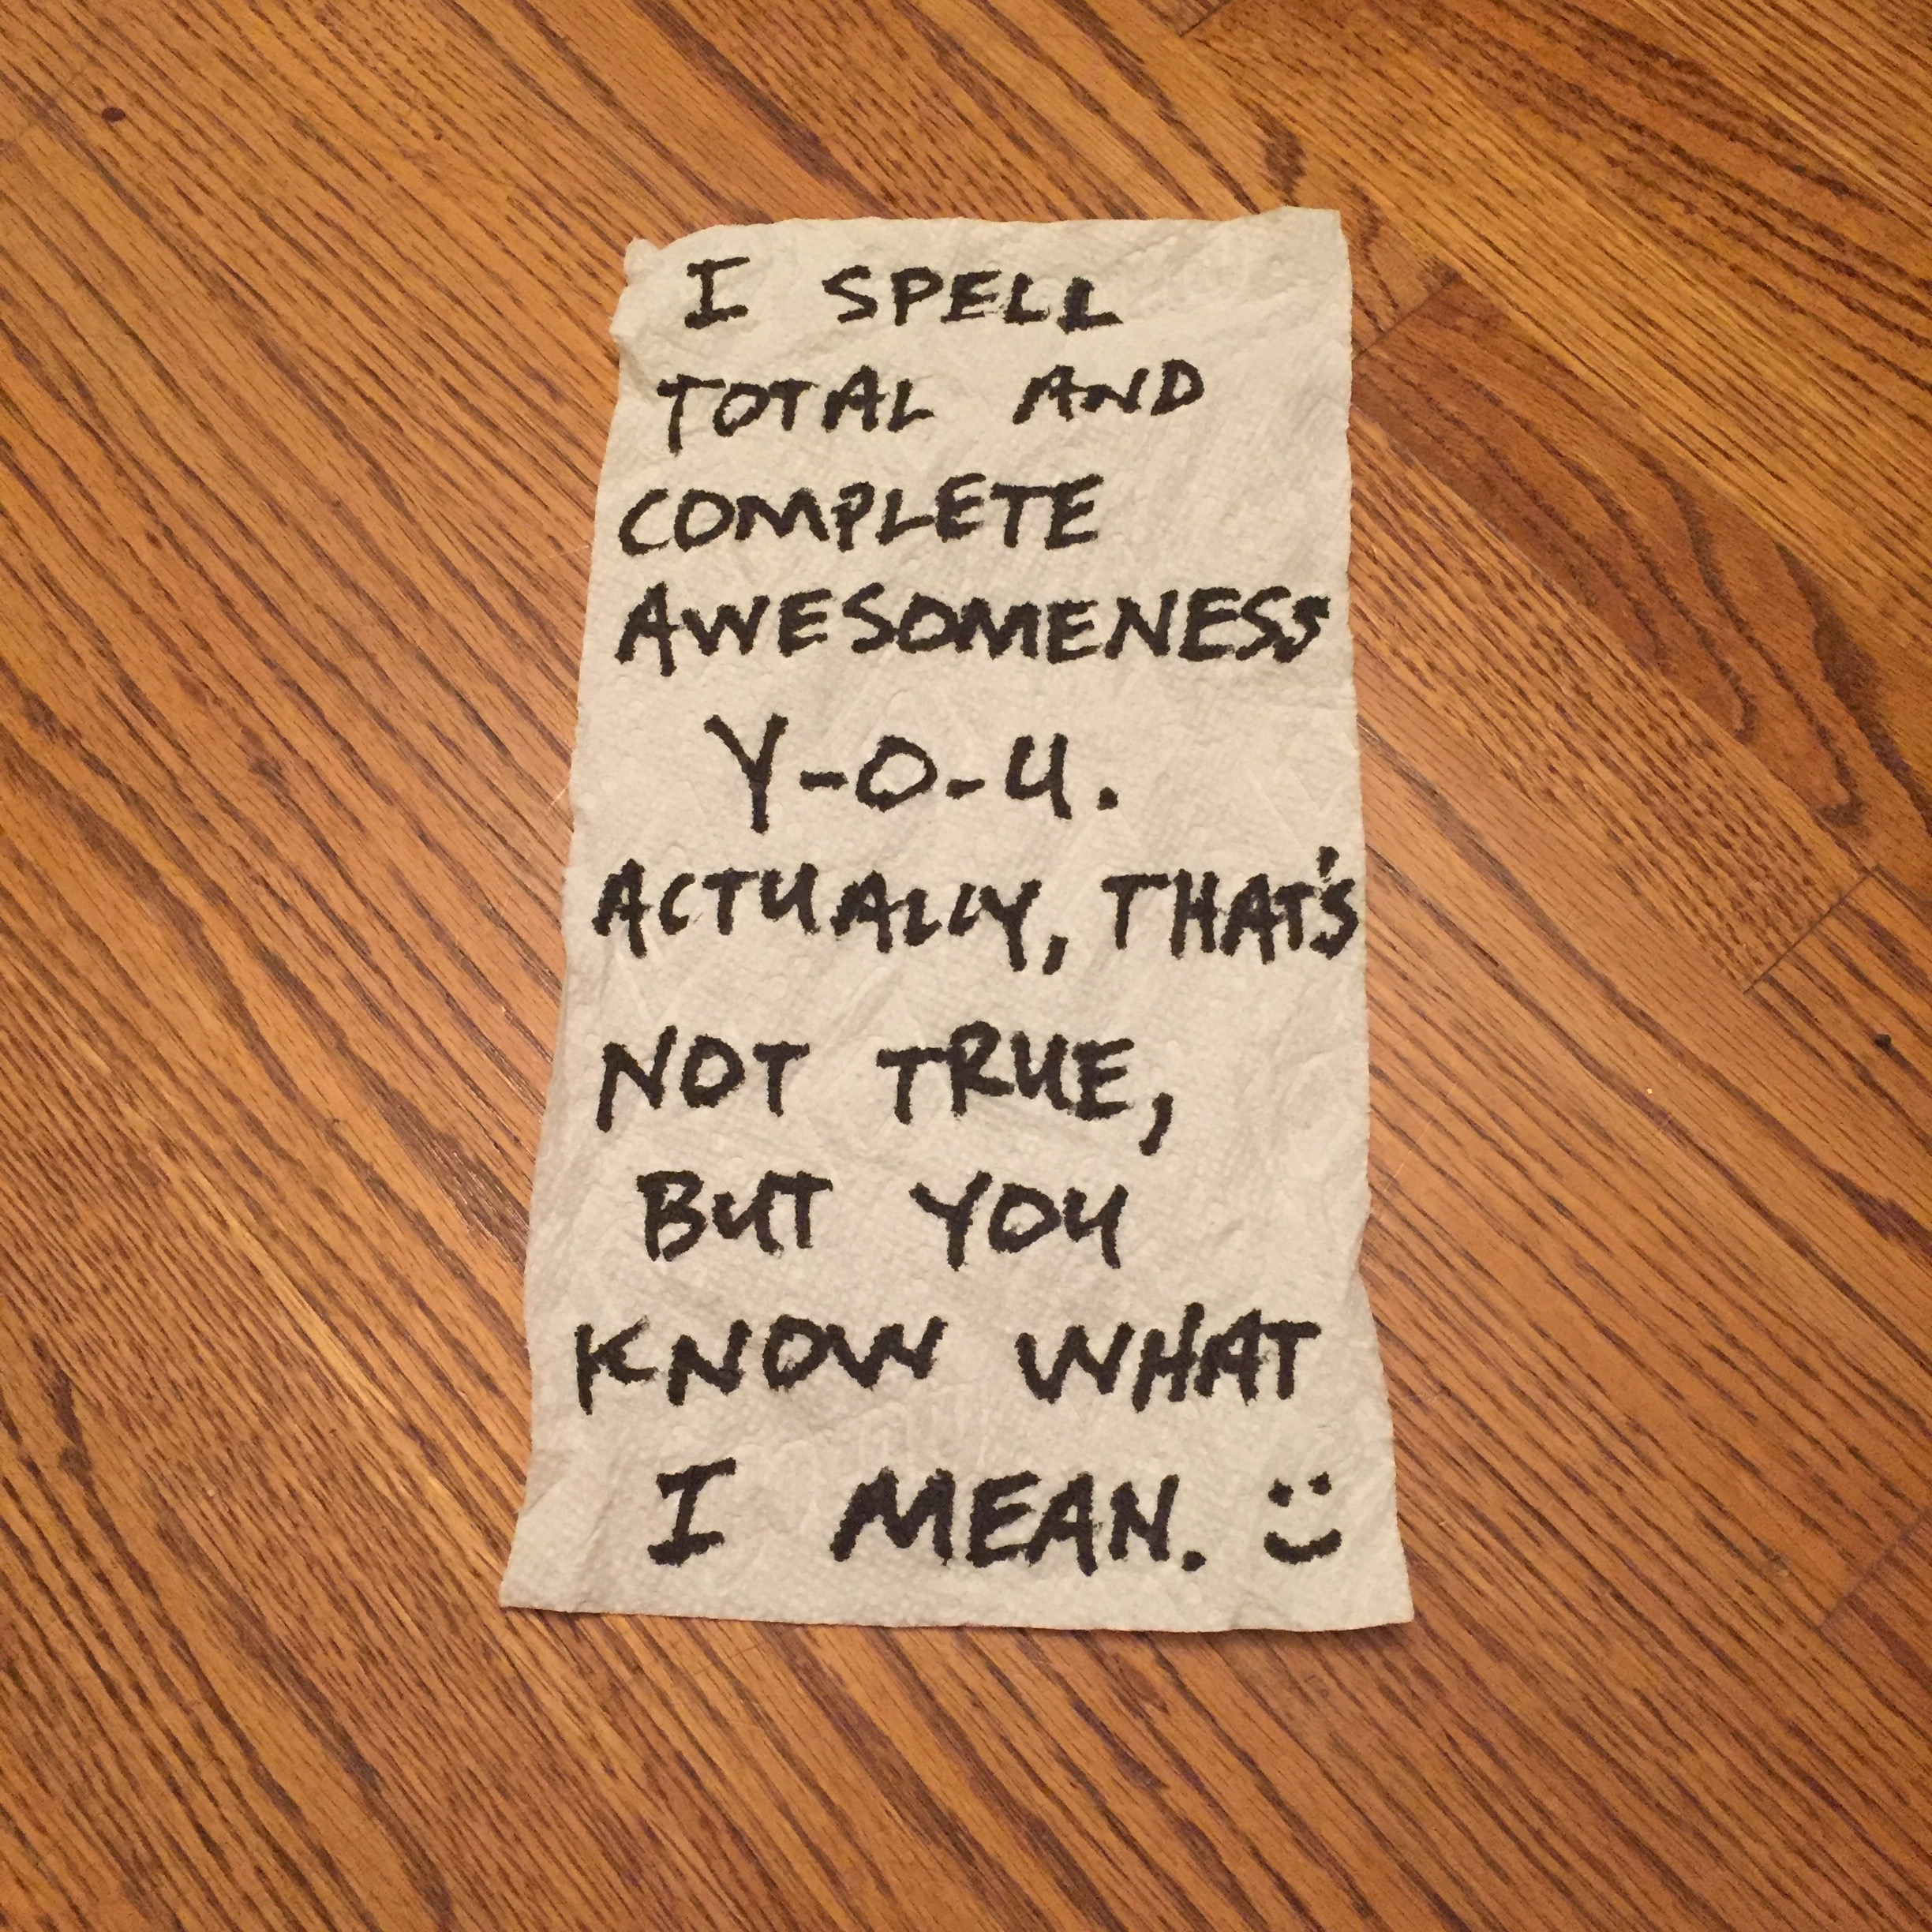 I SPELL
TOTAL AND
COMPLETE
AWESOMENESS
Y-O-U.
ACTUALLY, THAT'S
NOT TRUE,
BUT YOU
KNOW WHAT
I MEAN. :)